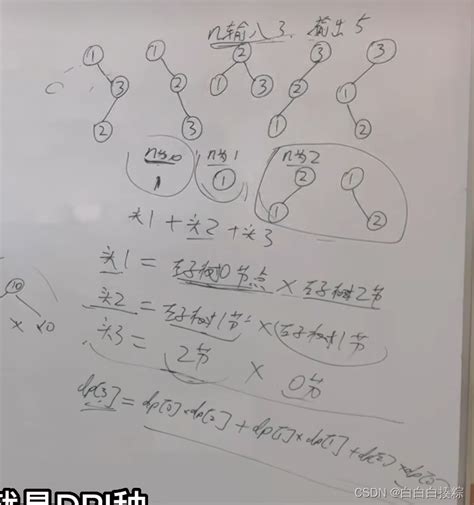 n输入3, 输出5
① ① ② ③ ③
③ ② ① ③ ② ①
② ③ ① ②
n为0 n为1 n为2
1 ① ② ①
① ②
头1 + 头2 + 头3
头1 = 左子树0节点 × 右子树2节
头2 = 左子树1节 × 右子树1节
头3 = 2节 × 0节
10
× 10
dp[3] = dp[0]×dp[2] + dp[1]×dp[1] + dp[2]×dp[0]
就是DP[种
CSDN @白白白揍粽